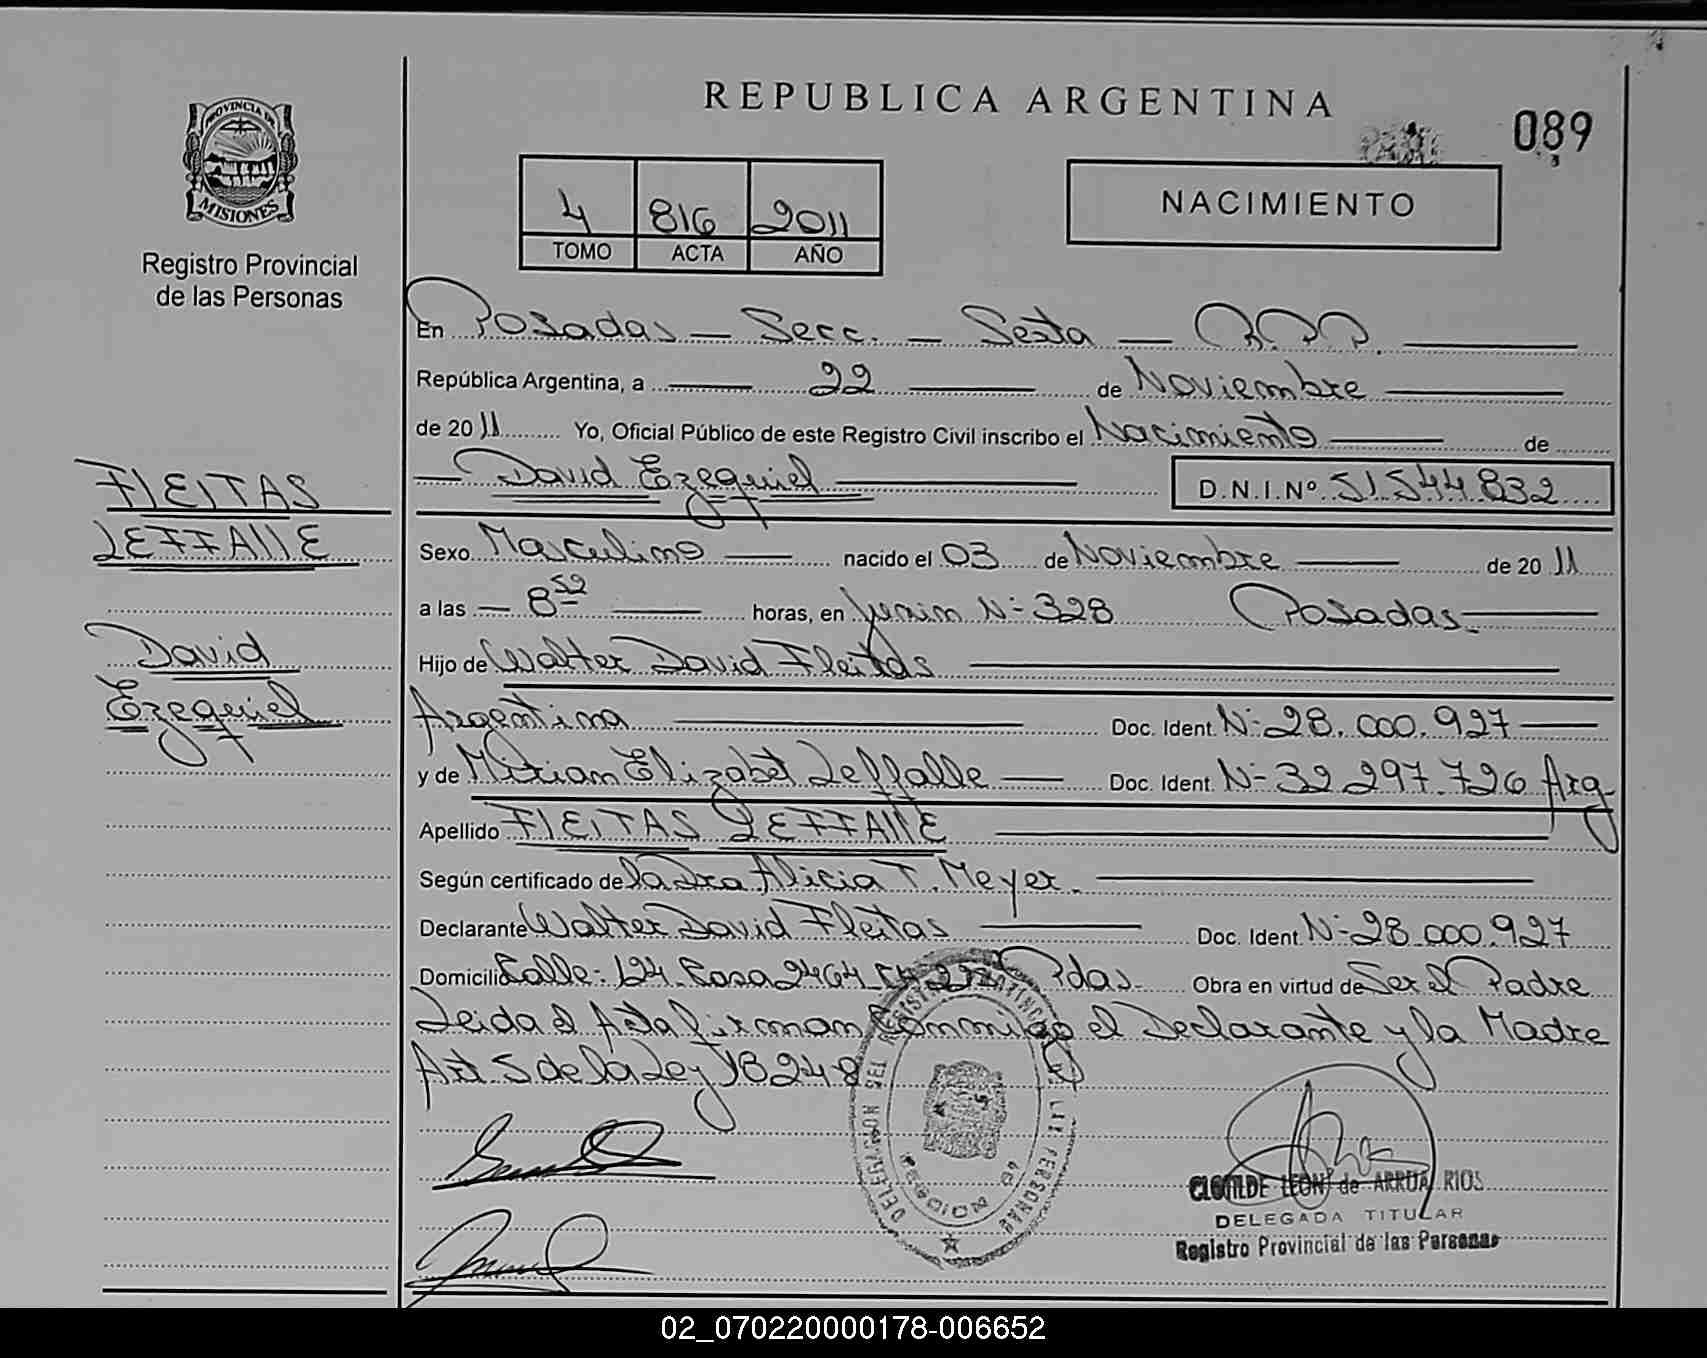 REPUBLICA ARGENTINA
089
PROVINCIA DE
MISIONES
Registro Provincial
de las Personas
4 816 2011
TOMO ACTA AÑO
NACIMIENTO
En Posadas — Secc. — Sexta — R.P.P.
República Argentina, a 22 de Noviembre
de 2011 Yo, Oficial Público de este Registro Civil inscribo el Nacimiento de
David Ezequiel D.N.I.Nº 51.544.832
FLEITAS
LEFFALLE
David
Ezequiel
Sexo Masculino nacido el 03 de Noviembre de 2011
a las 8 52 horas, en Junin Nº 328 Posadas
Hijo de Walter David Fleitas
Argentina Doc. Ident. Nº 28.000.927
y de Miriam Elizabet Leffalle Doc. Ident. Nº 32.297.726 Arg
Apellido FLEITAS LEFFALLE
Según certificado de la Dra Alicia T. Meyer.
Declarante Walter David Fleitas Doc. Ident. Nº 28.000.927
Domicilio Calle: 124. Casa 2464 Pdas. Obra en virtud de Ser el Padre
Leida el Acta firman Conmigo el Declarante y la Madre
Art 5 de la Ley 18248
DELEGACION DEL REGISTRO PROVINCIAL DE LAS PERSONAS
CLOTILDE LEON de ARRUA RIOS
DELEGADA TITULAR
Registro Provincial de las Personas
02_070220000178-006652